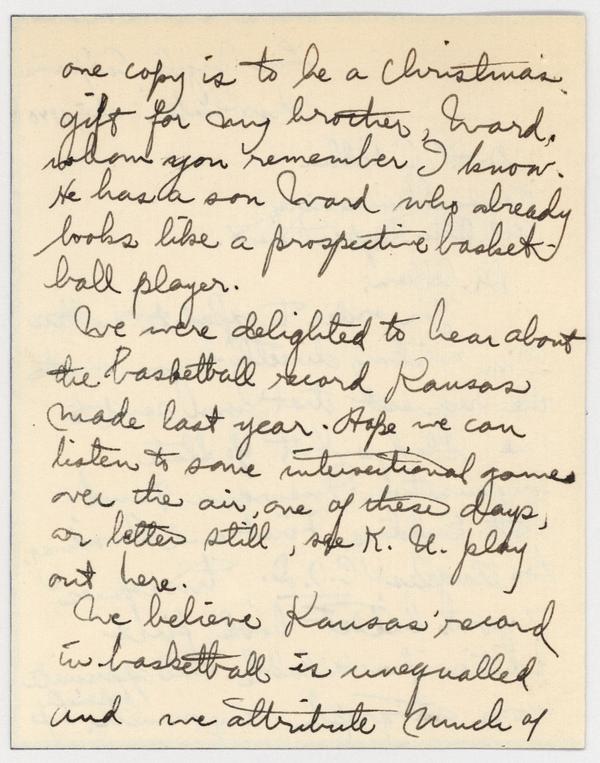 one copy is to be a Christmas
gift for my brother, Ward,
whom you remember I know.
He has a son Ward who already
looks like a prospective basket-
ball player.
We were delighted to hear about
the basketball record Kansas
made last year. Hope we can
listen to some intersectional games
over the air, one of these days,
or better still, see K. U. play
out here.
We believe Kansas' record
in basketball is unequalled
and we attribute much of